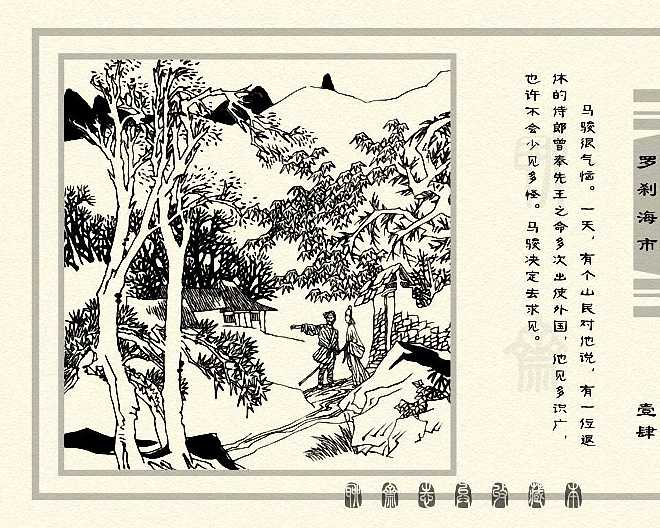 罗刹海市
壹肆
马骏很气恼。一天，有个山民对他说，有一位退
休的侍郎曾奉先王之命多次出使外国，他见多识广，
也许不会少见多怪。马骏决定去求见。
聊斋志异收藏本